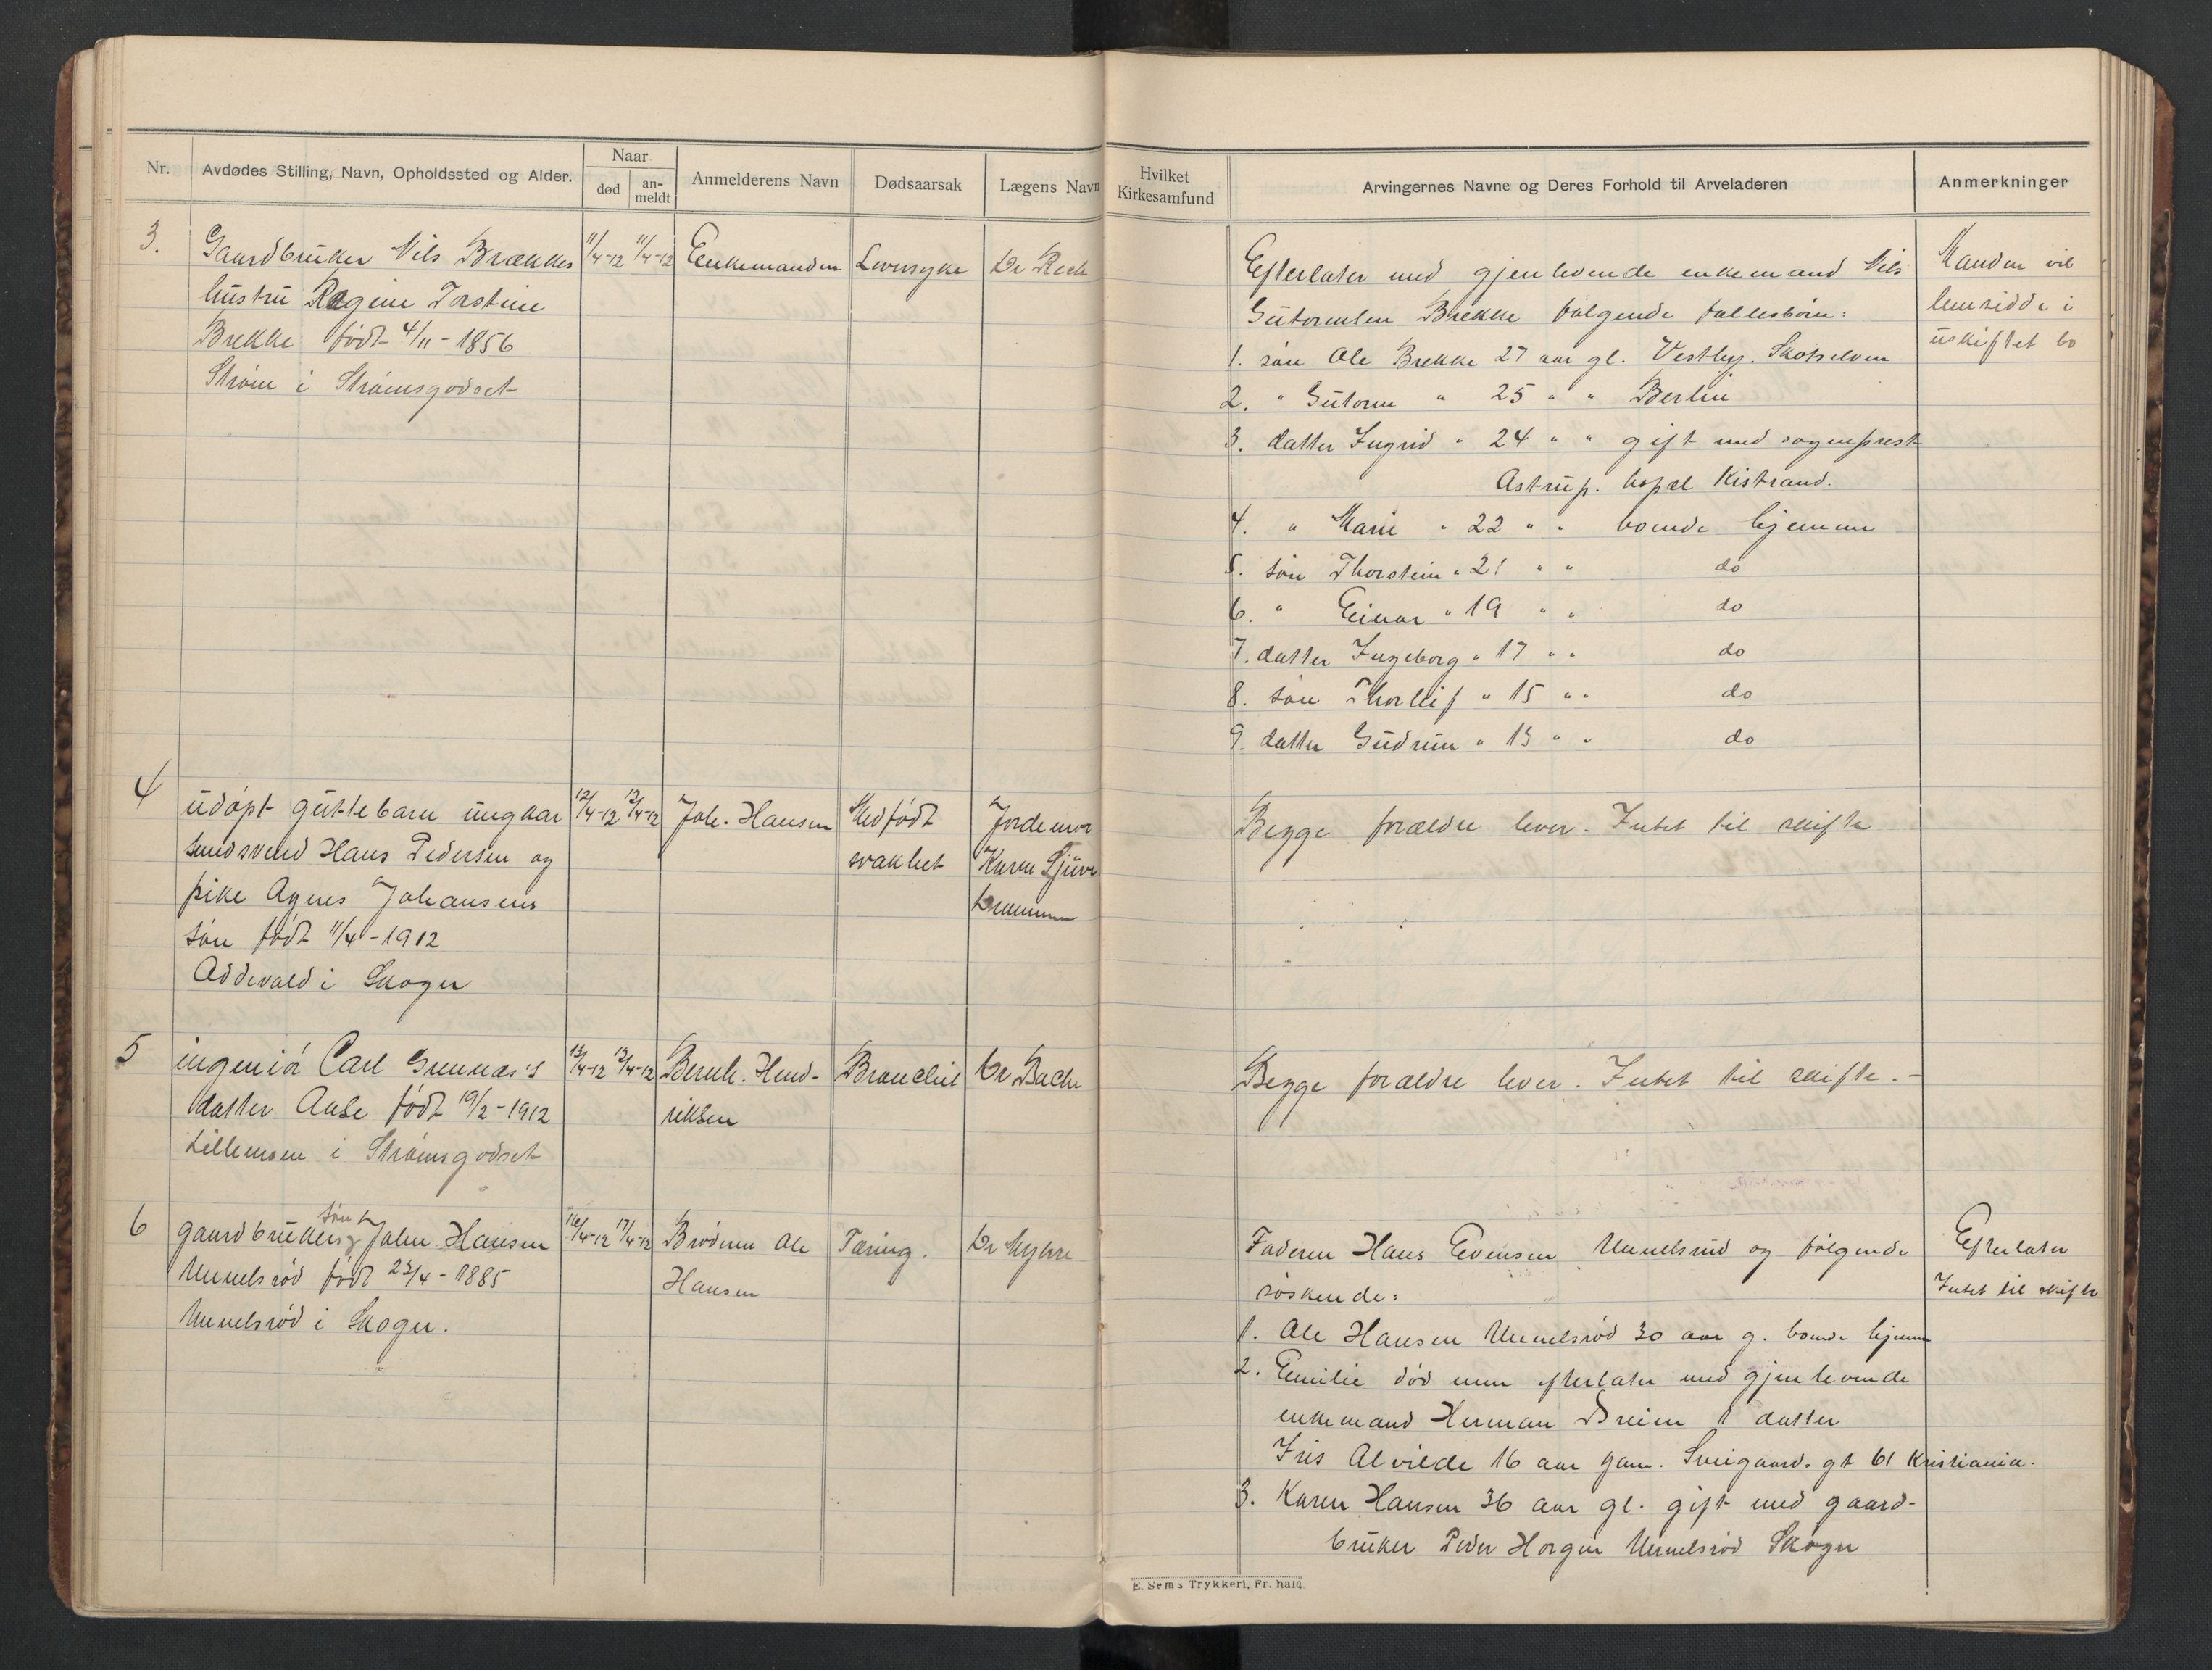 Nr.
Avdødes Stilling, Navn, Opholdssted og Alder.
Naar
død
an-
meldt
Anmelderens Navn
Dødsaarsak
Lægens Navn
Hvilket
Kirkesamfund
Arvingernes Navne og Deres Forhold til Arveladeren
Anmerkninger
3.
Gaardbruker Nils Brækkes
hustru Regine Torstine
Brekke født 4/11 - 1856
Strøm i Strømsgodset
11/4-12 11/4-12
Enkemanden
Leversyke
Dr
Efterlater med gjenlevende enkemand Nils
Gutormsen Brekke følgende fællesbørn:
1. søn Ole Brekke 27 aar gl. Vestby. Skotselven
2. " Gutorm " 25 " " Berlin
3. datter Ingrid " 24 " " gift med sogneprest
Astrup. bopæl Kistrand.
4. " Marie " 22 " " boende hjemme
5. søn Thorstein " 21 " " do
6. " Einar " 19 " " do
7. datter Ingeborg " 17 " " do
8. søn Thorleif " 15 " " do
9. datter Gudrun " 13 " " do
Manden vil
hensidde i
uskiftet bo
4
udøpt guttebarn ungkar
smedsvend Hans Pedersen og
pike Agnes Johansens
søn født 11/4 - 1912
Oddevald i Skoger
12/4-12 12/4-12
Joh. Hansen
Medfødt
svakhet
Jordemor
Karen
Drammen
Begge forældre lever. Intet til skifte
5
ingeniør Carl Gunnæs's
datter Aase født 19/2 - 1912
Lillemoen i Strømsgodset
13/4-12 13/4-12
Bernh. Hend-
riksen
Bronchit
Dr Bache
Begge forældre lever. Intet til skifte. -
6
søn
gaardbruker John Hansen
Unnelsrød født 23/4 - 1885
Unnelsrød i Skoger.
16/4-12 17/4-12
Broderen Ole
Hansen
Tæring.
Dr Myhre
Faderen Hans Evensen Unnelsrud og følgende
søskende:
1. Ole Hansen Unnelsrød 30 aar g. boende hjemme
2. Emilie død men efterlater med gjenlevende
enkemand Herman Breien 1 datter
Iris Alvilde 16 aar gam. Sveigaards gt 61 Kristiania.
3. Karen Hansen 36 aar gl. gift med gaard-
bruker Peder Horgen Unnelsrød Skoger
Efterlater
Intet til skifte
E. Sem's Trykkeri, Fr.hald